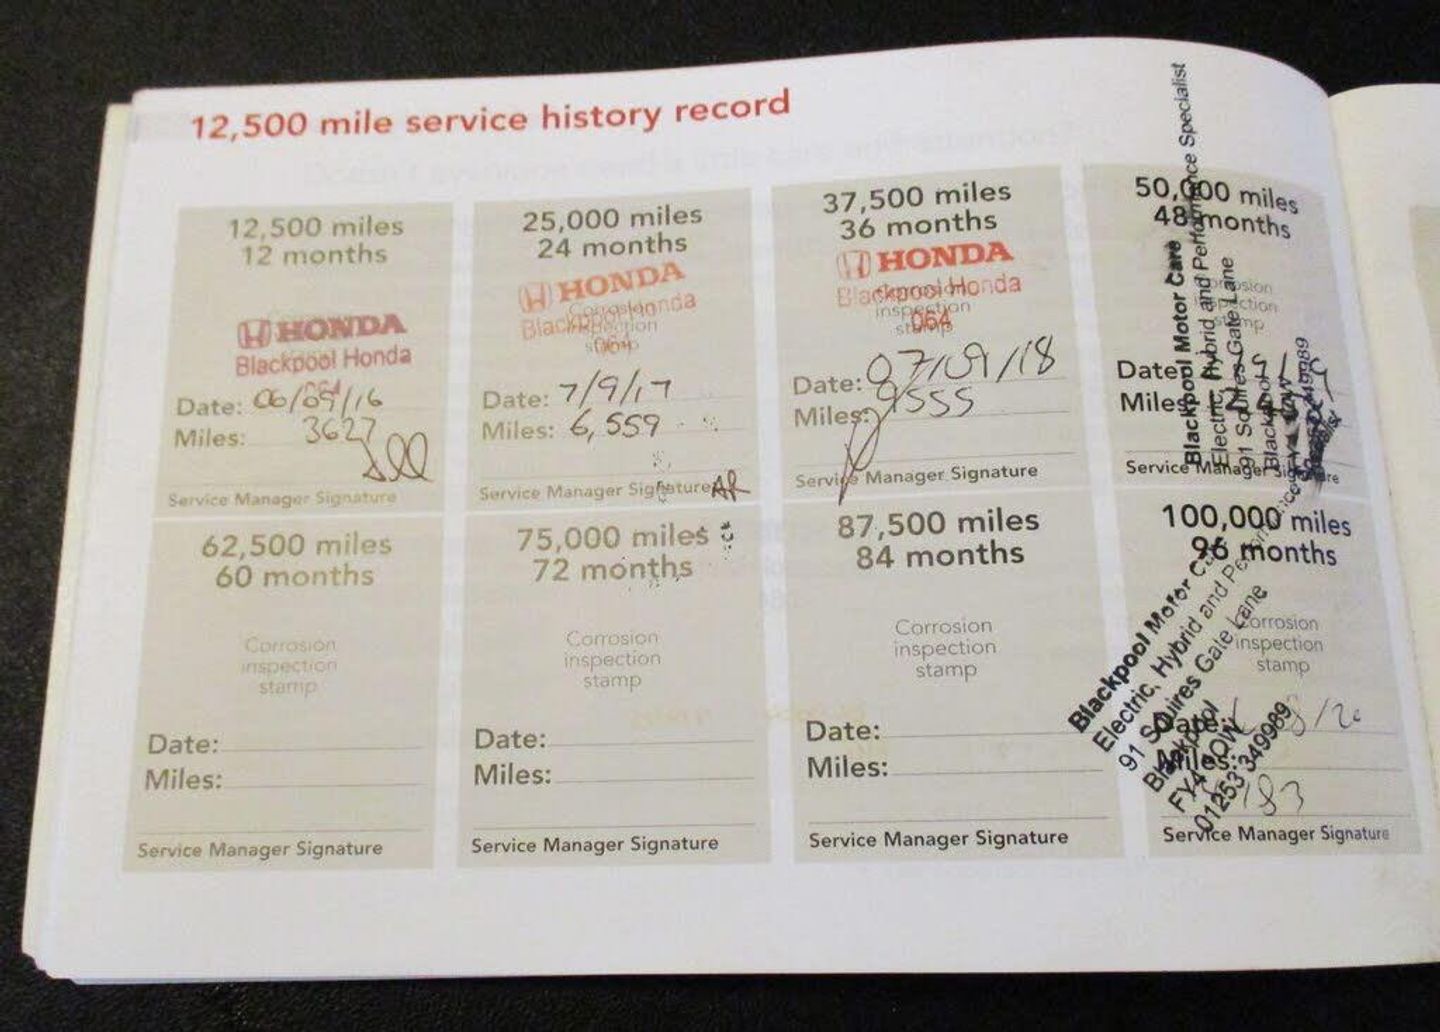 12,500 mile service history record
12,500 miles
12 months
HONDA
Blackpool Honda
Date: 06/09/16
Miles: 3627
Service Manager Signature
25,000 miles
24 months
HONDA
Blackpool Honda
Corrosion
inspection
stamp
064
Date: 7/9/17
Miles: 6,559
Service Manager Signature AR
37,500 miles
36 months
HONDA
Blackpool Honda
inspection
stamp
064
Date: 07/09/18
Miles: 9555
Service Manager Signature
50,000 miles
48 months
Corrosion
inspection
stamp
Date:
Miles:
Service Manager Signature
Blackpool Motor Care
Electric, Hybrid and Performance Specialist
91 Squires Gate Lane
Blackpool
62,500 miles
60 months
Corrosion
inspection
stamp
Date:
Miles:
Service Manager Signature
75,000 miles
72 months
Corrosion
inspection
stamp
Date:
Miles:
Service Manager Signature
87,500 miles
84 months
Corrosion
inspection
stamp
Date:
Miles:
Service Manager Signature
100,000 miles
96 months
Corrosion
inspection
stamp
Date: 8/20
Miles:
Service Manager Signature
Blackpool Motor
Electric, Hybrid and
91 Squires Gate Lane
Blackpool
FY4
01253 349989